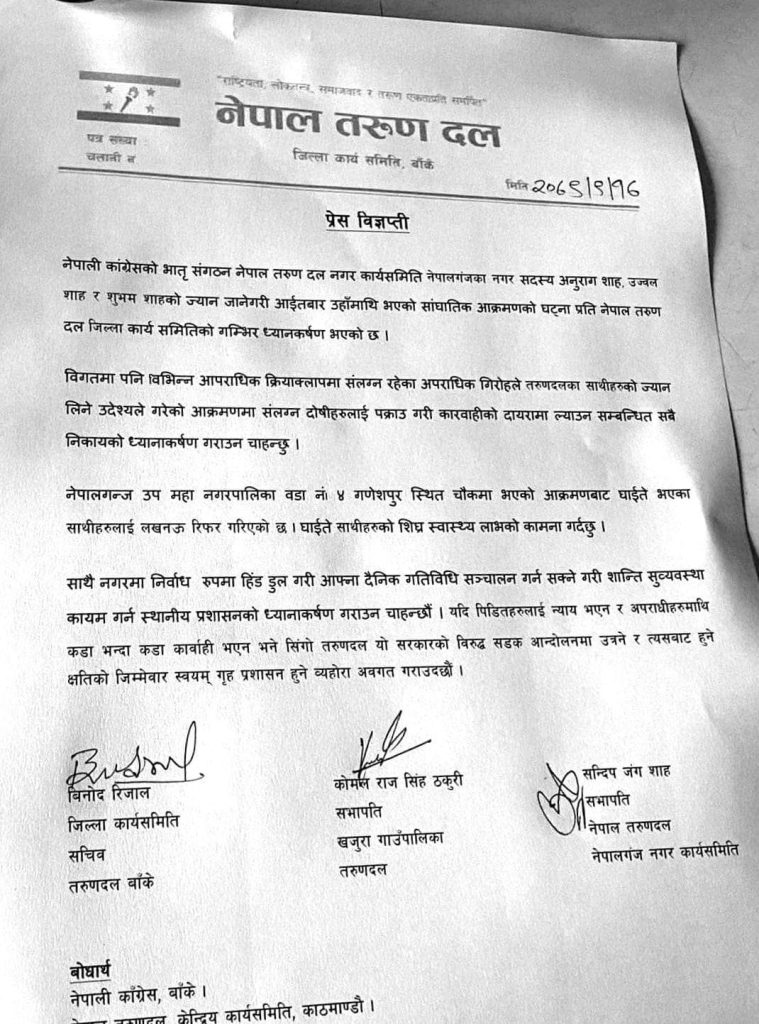 "राष्ट्रियता, लोकतन्त्र, समाजवाद र तरुण एकताप्रति समर्पित"
नेपाल तरुण दल
जिल्ला कार्य समिति, बाँके
पत्र संख्या
चलानी नं
मिति २०७९/९/१६
प्रेस विज्ञप्ती
नेपाली कांग्रेसको भातृ संगठन नेपाल तरुण दल नगर कार्यसमिति नेपालगंजका नगर सदस्य अनुराग शाह, उज्वल
शाह र शुभम शाहको ज्यान जानेगरी आईतबार उहाँमाथि भएको सांघातिक आक्रमणको घट्ना प्रति नेपाल तरुण
दल जिल्ला कार्य समितिको गम्भिर ध्यानकर्षण भएको छ ।
विगतमा पनि विभिन्न आपराधिक क्रियाक्लापमा संलग्न रहेका अपराधिक गिरोहले तरुणदलका साथीहरुको ज्यान
लिने उदेश्यले गरेको आक्रमणमा संलग्न दोषीहरुलाई पक्राउ गरी कारवाहीको दायरामा ल्याउन सम्बन्धित सबै
निकायको ध्यानाकर्षण गराउन चाहन्छु ।
नेपालगन्ज उप महा नगरपालिका वडा नं ४ गणेशपुर स्थित चौकमा भएको आक्रमणबाट घाईते भएका
साथीहरुलाई लखनऊ रिफर गरिएको छ । घाईते साथीहरुको शिघ्र स्वास्थ्य लाभको कामना गर्दछु ।
साथै नगरमा निर्वाध रुपमा हिंड डुल गरी आफ्ना दैनिक गतिविधि सञ्चालन गर्न सक्ने गरी शान्ति सुव्यवस्था
कायम गर्न स्थानीय प्रशासनको ध्यानाकर्षण गराउन चाहन्छौं । यदि पिडितहरुलाई न्याय भएन र अपराधीहरुमाथि
कडा भन्दा कडा कार्वाही भएन भने सिंगो तरुणदल यो सरकारको विरुद्ध सडक आन्दोलनमा उत्रने र त्यसबाट हुने
क्षतिको जिम्मेवार स्वयम् गृह प्रशासन हुने व्यहोरा अवगत गराउदछौं ।
बिनोद रिजाल
जिल्ला कार्यसमिति
सचिव
तरुणदल बाँके
कोमल राज सिंह ठकुरी
सभापति
खजुरा गाउँपालिका
तरुणदल
सन्दिप जंग शाह
सभापति
नेपाल तरुणदल
नेपालगंज नगर कार्यसमिति
बोधार्थ
नेपाली काँग्रेस, बाँके ।
नेपाल तरुणदल, केन्द्रिय कार्यसमिति, काठमाण्डौ ।